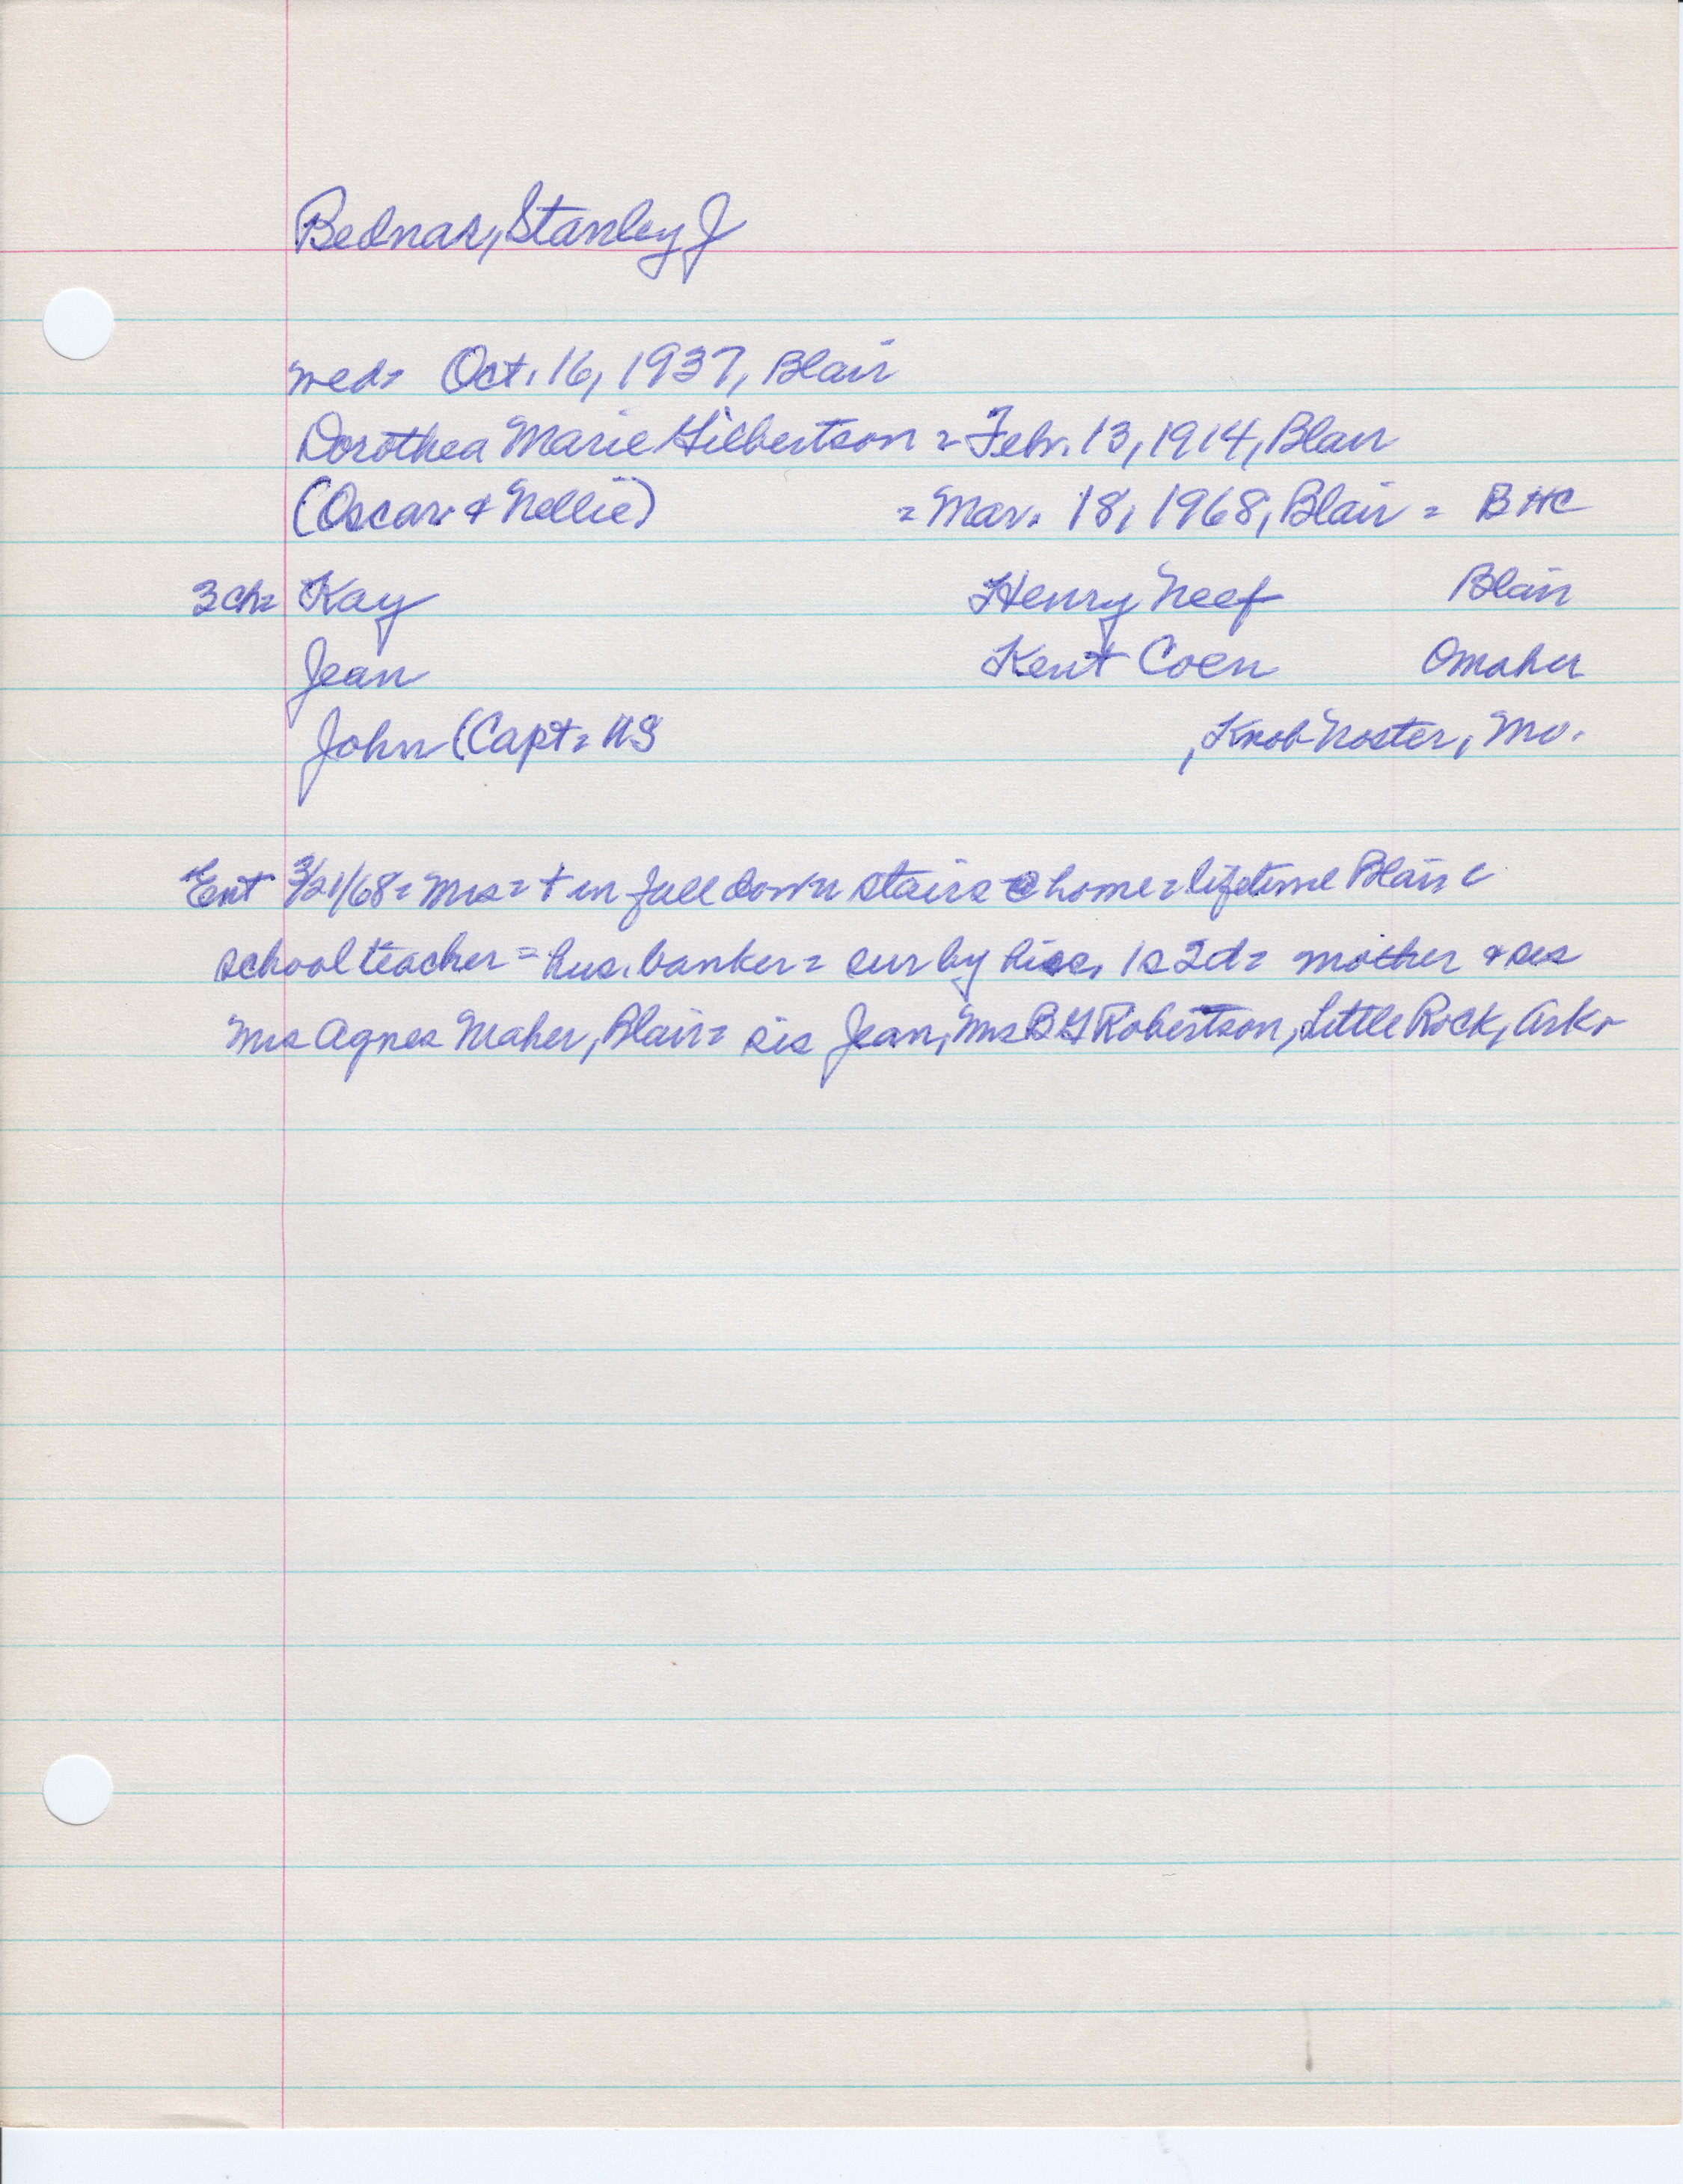 Bednar, Stanley J
wed= Oct. 16, 1937, Blair
Dorothea Marie Gilbertson = Feb. 13, 1914, Blair
(Oscar & Nellie) = Mar. 18, 1968, Blair = BHC
3 ch= Kay Henry Neef Blair
Jean Kent Coen Omaha
John (Capt= US , Knob Noster, Mo.
Ent 3/21/68= Mrs= + in fall down stairs @ home = lifetime Blair
school teacher = hus. banker = sur by 1s 2d= mother & sis
Mrs Agnes Maher, Blair= sis Jean, Mrs B G Robertson, Little Rock, Ark